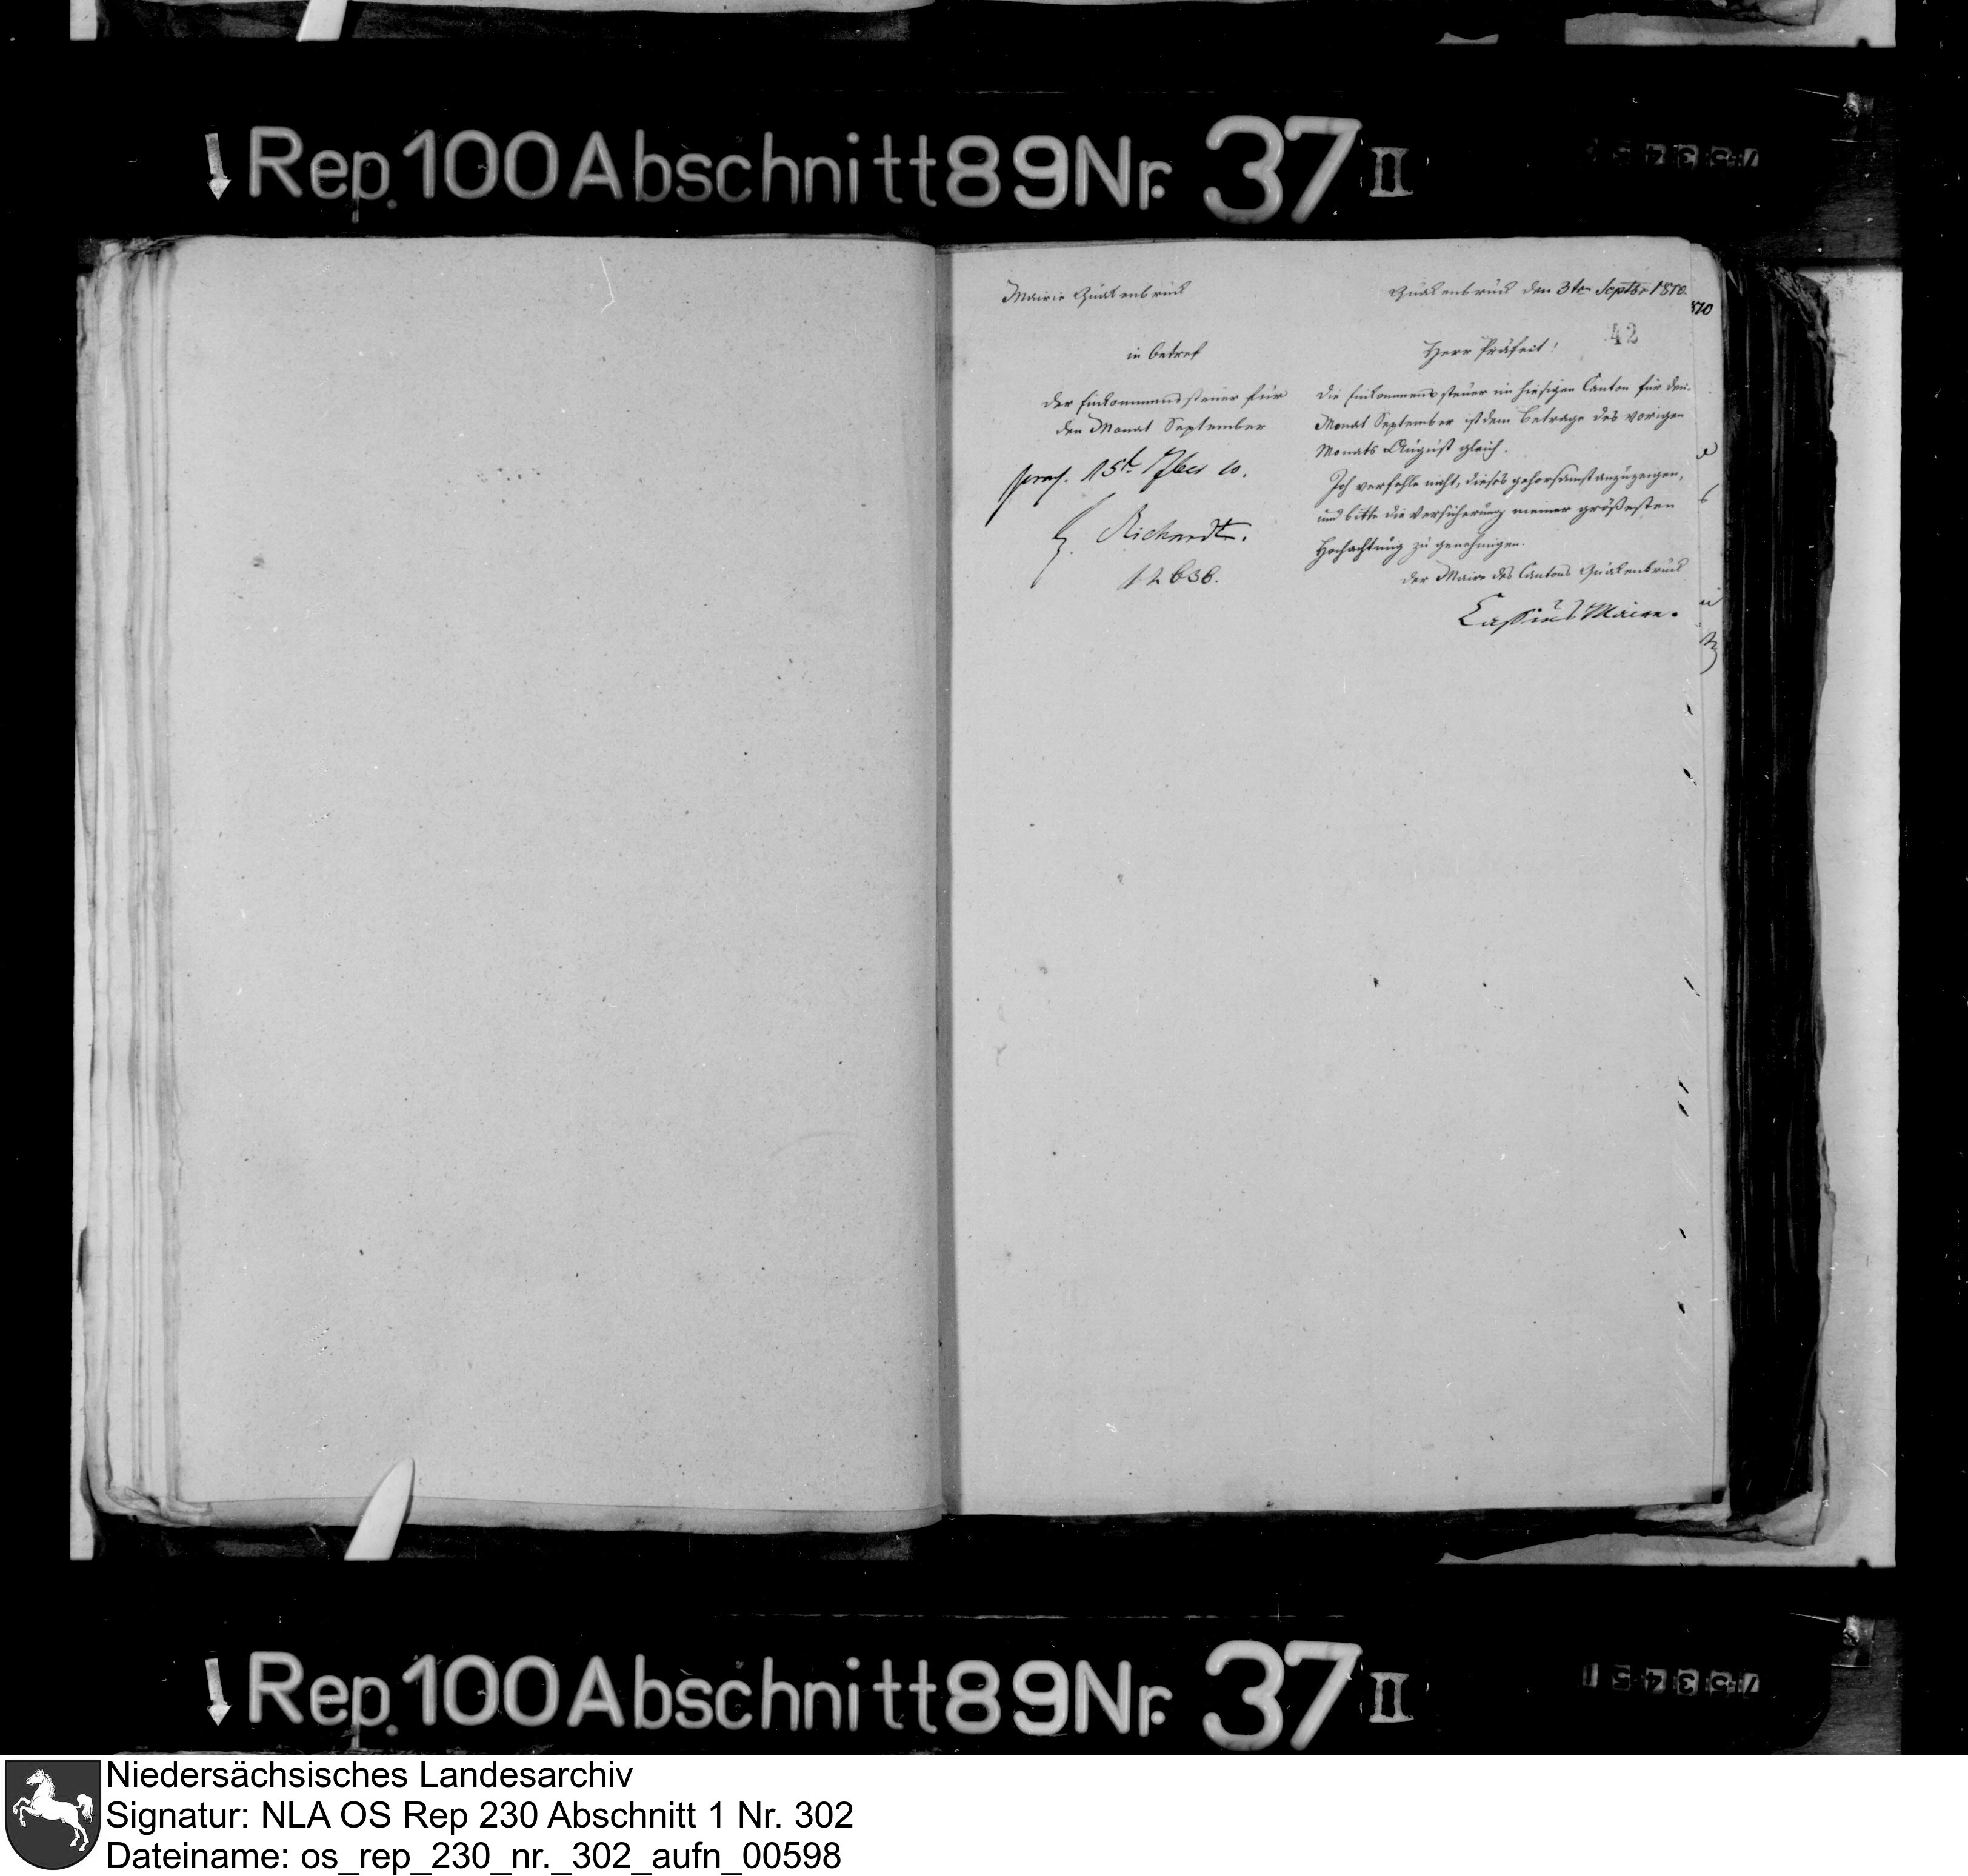 Rep. 100 Abschnitt 89 Nr. 37 II
Mairie Quakenbrück
in betref
der Einkommenssteuer für
den Monat September
praes. 15t 7ber 10.
Richardt.
12636.
Quakenbrück den 3ten Septbr 1810.
42
Herr Präfect!
Die Einkommenssteuer im hiesigen Canton für den
Monat September ist dem Betrage des vorigen
Monats August gleich.
Ich verfehle nicht, dieses gehorsamst anzuzeigen,
und bitte die Versicherung meiner größesten
Hochachtung zu genehmigen.
Der Maire des Cantons Quakenbrück
Cassius Maire.
Rep. 100 Abschnitt 89 Nr. 37 II
Niedersächsisches Landesarchiv
Signatur: NLA OS Rep 230 Abschnitt 1 Nr. 302
Dateiname: os_rep_230_nr._302_aufn_00598